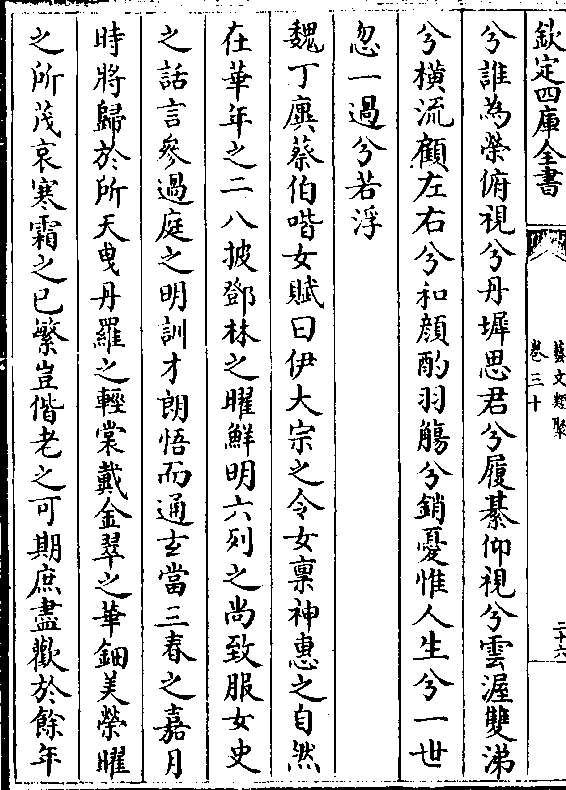 欽定四庫全書
藝文類聚
卷三十
二十六
兮誰為榮俯視兮丹墀思君兮履綦仰視兮雲渥雙涕
兮橫流顧左右兮和顔酌羽觴兮銷憂惟人生兮一世
忽一過兮若浮
魏丁廙蔡伯喈女賦曰伊大宗之令女禀神惠之自然
在華年之二八披鄧林之曜鮮明六列之尚致服女史
之話言參過庭之明訓才朗悟而通玄當三春之嘉月
時將歸於所天曳丹羅之輕裳戴金翠之華鈿美榮曜
之所茂哀寒霜之已繁豈偕老之可期庶盡歡於餘年